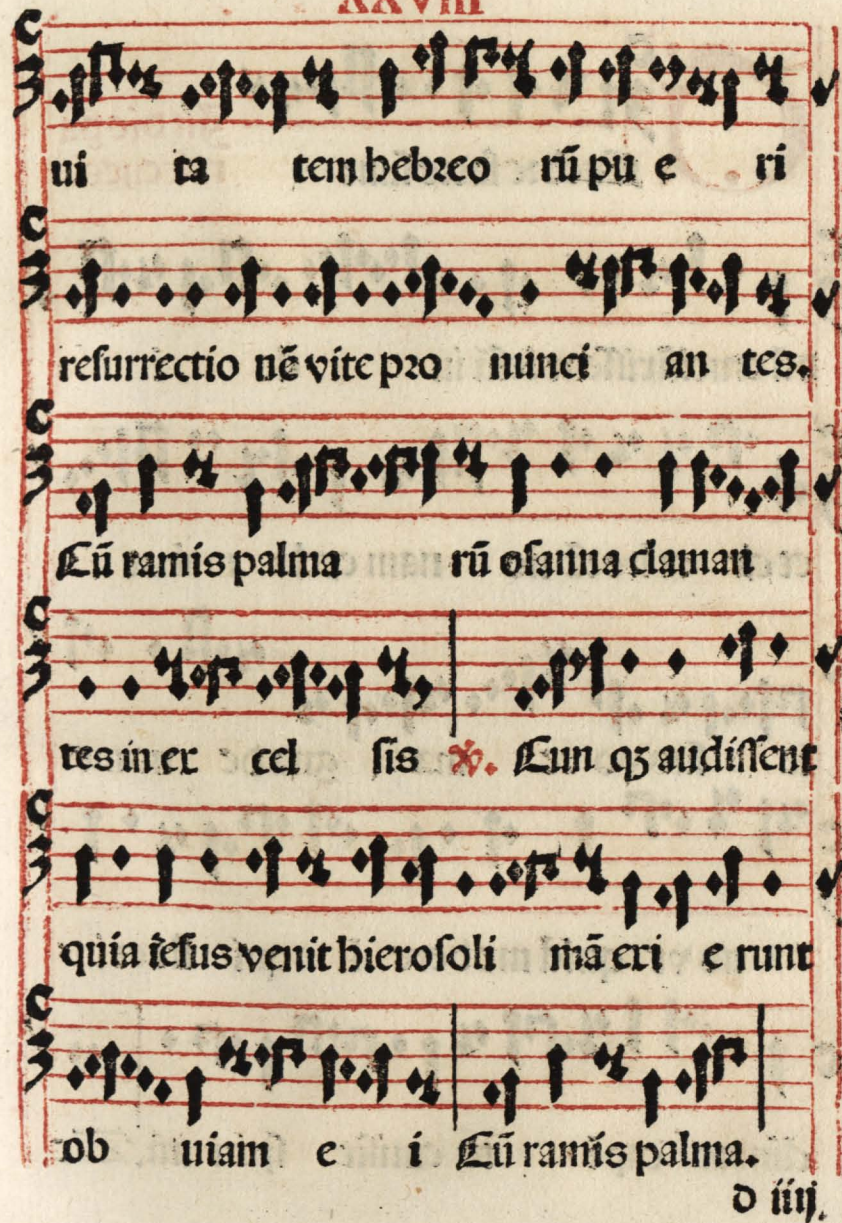 XXVIII
ui ta tem hebreo rū pu e ri
resurrectio nē vite pro nunci an tes.
Cū ramis palma rū osanna claman
tes in ex cel sis ℣. Cun qꝫ audissent
quia iesus venit hierosoli mā exi e runt
ob uiam e i Cū ramis palma.
d iiij.